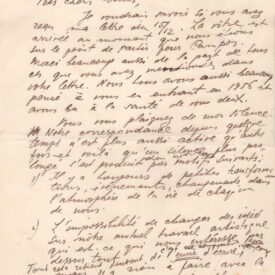 Très chers amis,
Je voudrais savoir si vous avez
reçu ma lettre du 15/12. La vôtre est
arrivée au moment où nous étions
sur le point de partir pour
Merci beaucoup aussi de la part de
ce que vous avez dans
votre lettre. Nous vous avons aussi beaucoup
pensé à vous en entrant en 1956 et
avons bu à la santé de vous deux.
Vous vous plaignez de mon silence.
Notre correspondance depuis quelque
temps n'est plus aussi active qu'autre
fois et voilà qu'un silence plus pro
longé s'est produit pour motifs suivants:
1) Il y a toujours de petites transforma
tions, évènements, changements dans
l'atmosphère de la vie de chacun
de nous.
2) L'impossibilité de changer des idées
sur notre mutuel travail artistique
qui est ce qui nous intéresse par
dessus tout
Tout cela
rien à faire avec